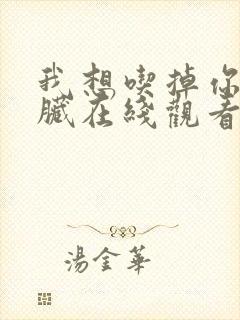 我想喫掉你
臟在綫觀看
湯金華